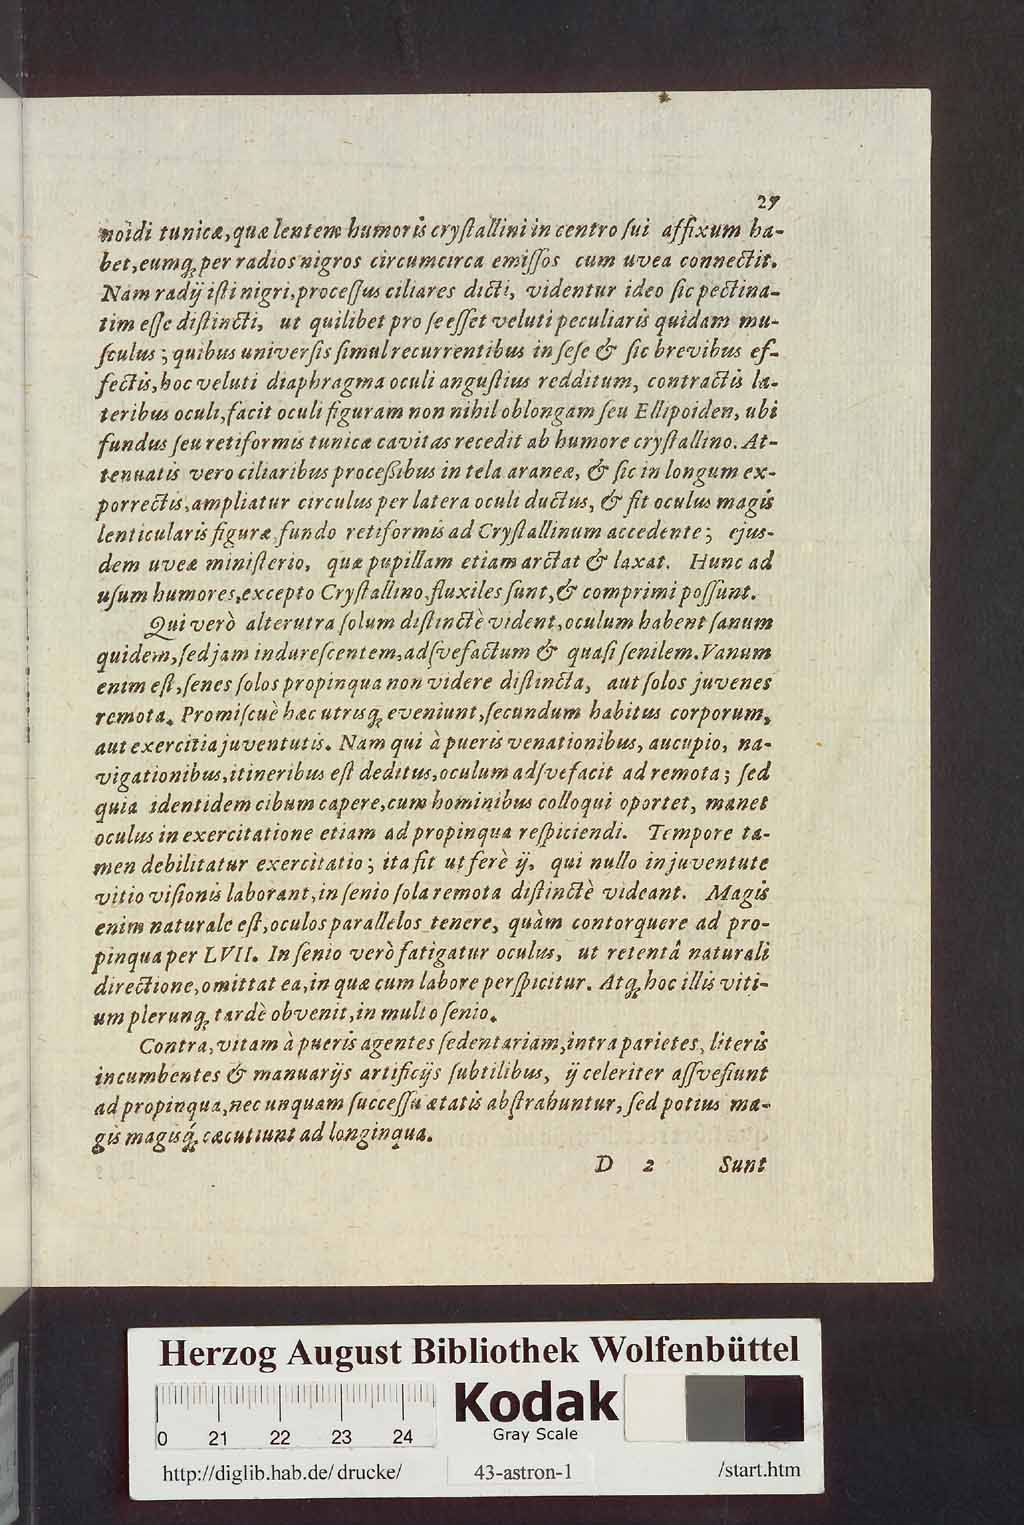 27
noidi tunicæ, quæ lentem humoris cryſtallini in centro ſui affixum ha-
bet, eumq; per radios nigros circumcirca emiſſos cum uvea connectit.
Nam radij iſti nigri, proceſſus ciliares dicti, videntur ideo ſic pectina-
tim eſſe diſtincti, ut quilibet pro ſe eſſet veluti peculiaris quidam mu-
ſculus; quibus univerſis ſimul recurrentibus in ſeſe & ſic brevibus ef-
fectis, hoc veluti diaphragma oculi anguſtius redditum, contractis la-
teribus oculi, facit oculi figuram non nihil oblongam ſeu Ellipoiden, ubi
fundus ſeu retiformis tunicæ cavitas recedit ab humore cryſtallino. At-
tenuatis vero ciliaribus proceßibus in tela araneæ, & ſic in longum ex-
porrectis, ampliatur circulus per latera oculi ductus, & fit oculus magis
lenticularis figuræ, fundo retiformis ad Cryſtallinum accedente; ejus-
dem uveæ miniſterio, quæ pupillam etiam arctat & laxat. Hunc ad
uſum humores, excepto Cryſtallino, fluxiles ſunt, & comprimi poſſunt.
Qui verò alterutra ſolum diſtinctè vident, oculum habent ſanum
quidem, ſed jam indureſcentem, adſvefactum & quaſi ſenilem. Vanum
enim eſt, ſenes ſolos propinqua non videre diſtincta, aut ſolos juvenes
remota. Promiſcuè hæc utrisq; eveniunt, ſecundum habitus corporum,
aut exercitia juventutis. Nam qui à pueris venationibus, aucupio, na-
vigationibus, itineribus eſt deditus, oculum adſvefacit ad remota; ſed
quia identidem cibum capere, cum hominibus colloqui oportet, manet
oculus in exercitatione etiam ad propinqua reſpiciendi. Tempore ta-
men debilitatur exercitatio; ita fit ut ferè ij, qui nullo in juventute
vitio viſionis laborant, in ſenio ſola remota diſtinctè videant. Magis
enim naturale eſt, oculos parallelos tenere, quàm contorquere ad pro-
pinqua per LVII. In ſenio verò fatigatur oculus, ut retentâ naturali
directione, omittat ea, in quæ cum labore perſpicitur. Atq; hoc illis viti-
um plerunq; tardè obvenit, in multo ſenio.
Contra, vitam à pueris agentes ſedentariam, intra parietes, literis
incumbentes & manuarijs artificijs ſubtilibus, ij celeriter aſſveſiunt
ad propinqua, nec unquam ſucceſſu ætatis abſtrahuntur, ſed potius ma-
gis magisq́; cæcutiunt ad longinqua.
D 2 Sunt
Herzog August Bibliothek Wolfenbüttel
Kodak
Gray Scale
0 21 22 23 24
http://diglib.hab.de/drucke/ 43-astron-1 /start.htm